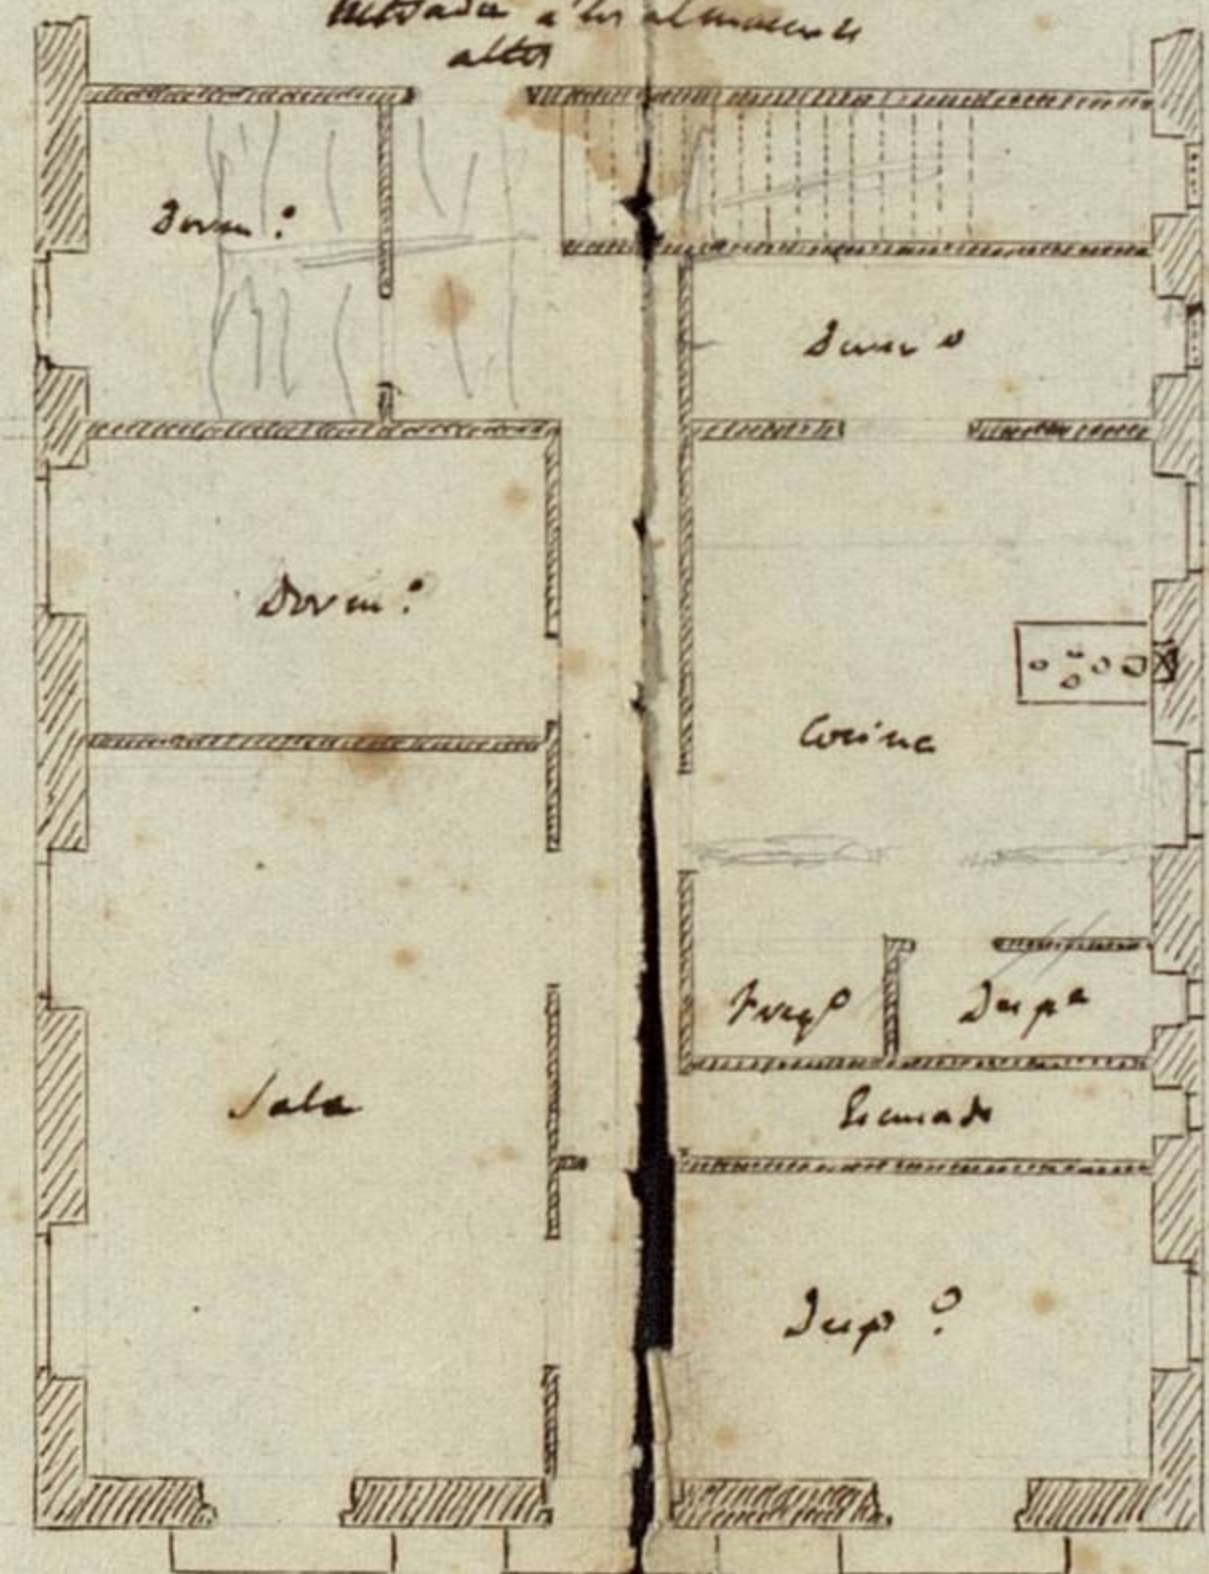 entrada a los almacenes
altos
Dorm.º
Dorm.º
Dorm.º
Cocina
Freg.º
Desp.ª
Sala
Escusado
Desp.º